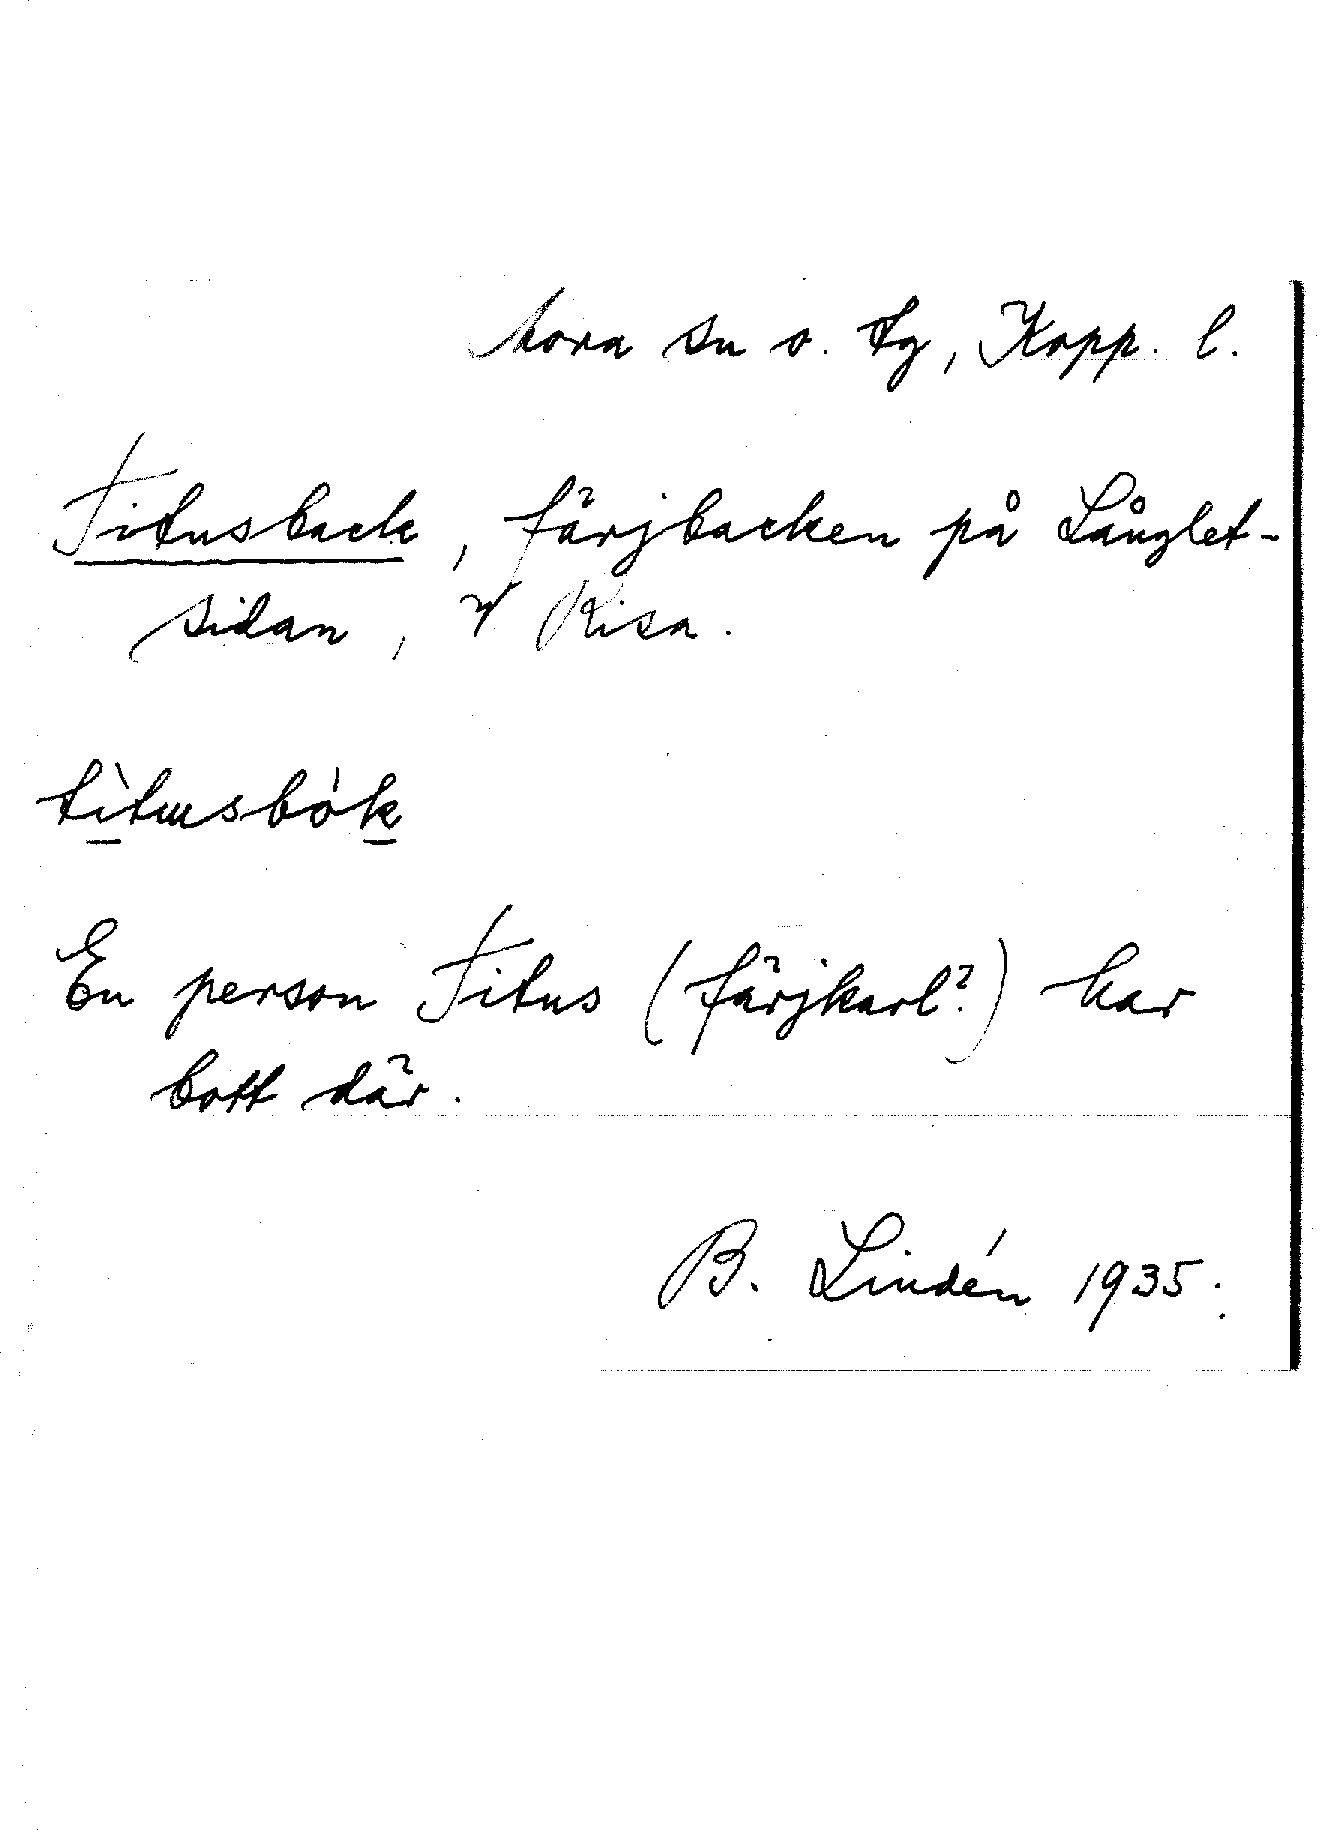 Mora sn o. tg, Kopp. l.
Titusback, färjbacken på Långlet-
sidan, Risa.
tìtusbòk
En person Titus (färjkarl?) har
bott där.
B. Lindén 1935.